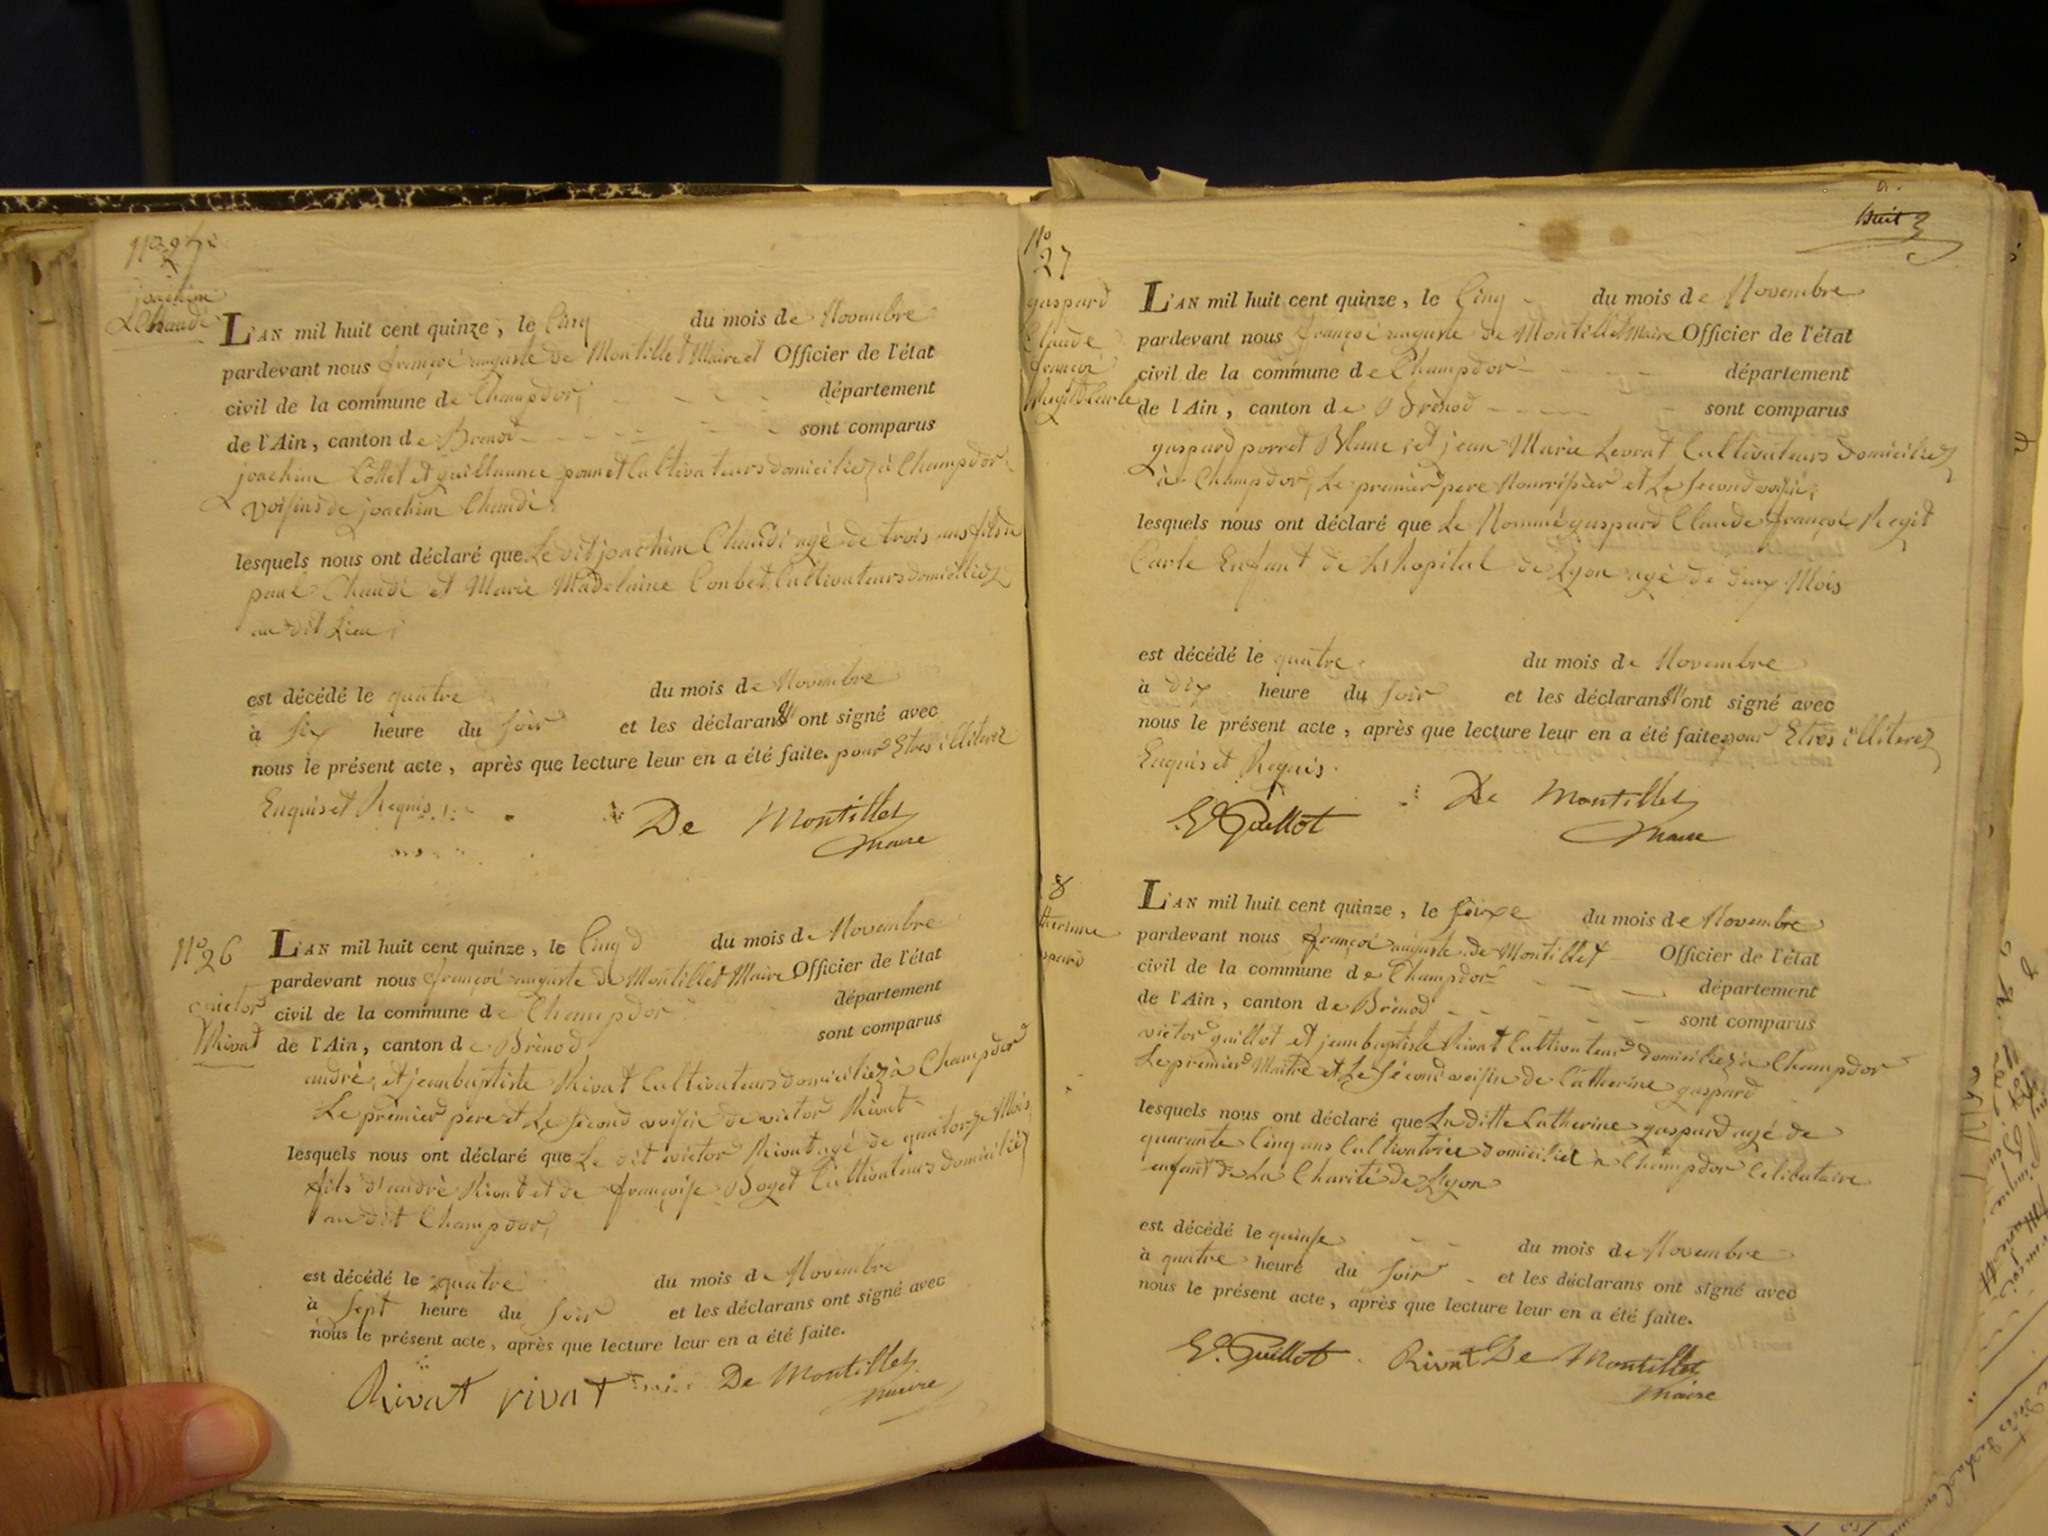 joachim
Chaudi
L'AN mil huit cent quinze, le Cinq du mois de Novembre
pardevant nous françoi auguste de Montillet Maire et Officier de l'état
civil de la commune de Champdor, département
de l'Ain, canton de Brenod sont comparus
joachim Collet et guillaume ponnet Cultivateurs domiciliez à Champdor
voisins de joachim Chaudi,
lesquels nous ont déclaré que Le dit joachim Chaudi agè de trois ans fils de
paul Chaudi et Marie Madelaine Conbet Cultivateurs domiciliez
au dit Lieu,
est décédé le quatre du mois de Novembre
à six heure du soir et les déclarans n'ont signé avec
nous le présent acte, après que lecture leur en a été faite. pour Etres illiterez
Enquis et Requis.
De Montillet
maire
N° 26
victor
Rivat
L'AN mil huit cent quinze, le Cinq du mois de Novembre
pardevant nous françoi auguste de Montillet Maire Officier de l'état
civil de la commune de Champdor département
de l'Ain, canton de Brénod sont comparus
andrè, et jean baptiste Rivat Cultivateurs domiciliez à Champdor
Le prémier père et Le sécond voisin de victor Rivat
lesquels nous ont déclaré que Le dit victor Rivat agé de quatorze Mois
fils d'andrè Rivat et de françoise Boget Cultivateurs domiciliez
au dit Champdor,
est décédé le quatre du mois de Novembre
à sept heure du soir et les déclarans ont signé avec
nous le présent acte, après que lecture leur en a été faite.
Rivat rivat De Montillet
maire
huit
N°
27
gaspard
Claude
françoi
Regit Carle
L'AN mil huit cent quinze, le Cinq du mois de Novembre
pardevant nous françoi auguste de Montillet Maire Officier de l'état
civil de la commune de Champdor département
de l'Ain, canton de Brènod sont comparus
gaspard porret Blanc, et jean Marie Levrat Cultivateurs domiciliez
à Champdor, Le premier pere Nourrisier et Le second voisin,
lesquels nous ont déclaré que Le Nommé gaspard Claude françoi Regit
Carle Enfant de L'hopital de Lyon agé de deux Mois
est décédé le quatre du mois de Novembre
à dix heure du soir et les déclarans n'ont signé avec
nous le présent acte, après que lecture leur en a été faite pour Etres illiterez
Enquis et Requis.
De Montillet
Guillot
maire
8
therinne
spard
L'AN mil huit cent quinze, le seize du mois de Novembre
pardevant nous françoi auguste de Montillet Officier de l'état
civil de la commune de Champdor département
de l'Ain, canton de Brénod sont comparus
victor guillot et jean baptiste Rivat Cultivateur domiciliez à Champdor
Le prémier Maitre et Le sécond voisin de Catherine gaspard
lesquels nous ont déclaré que La ditte Catherine gaspard agé de
quarante Cinq ans Cultivatrice domiciliéé à Champdor Celibataire
enfant de La Charité de Lyon
est décédé le quinse du mois de Novembre
à quatre heure du soir et les déclarans ont signé avec
nous le présent acte, après que lecture leur en a été faite.
Guillot Rivat De Montillet
maire